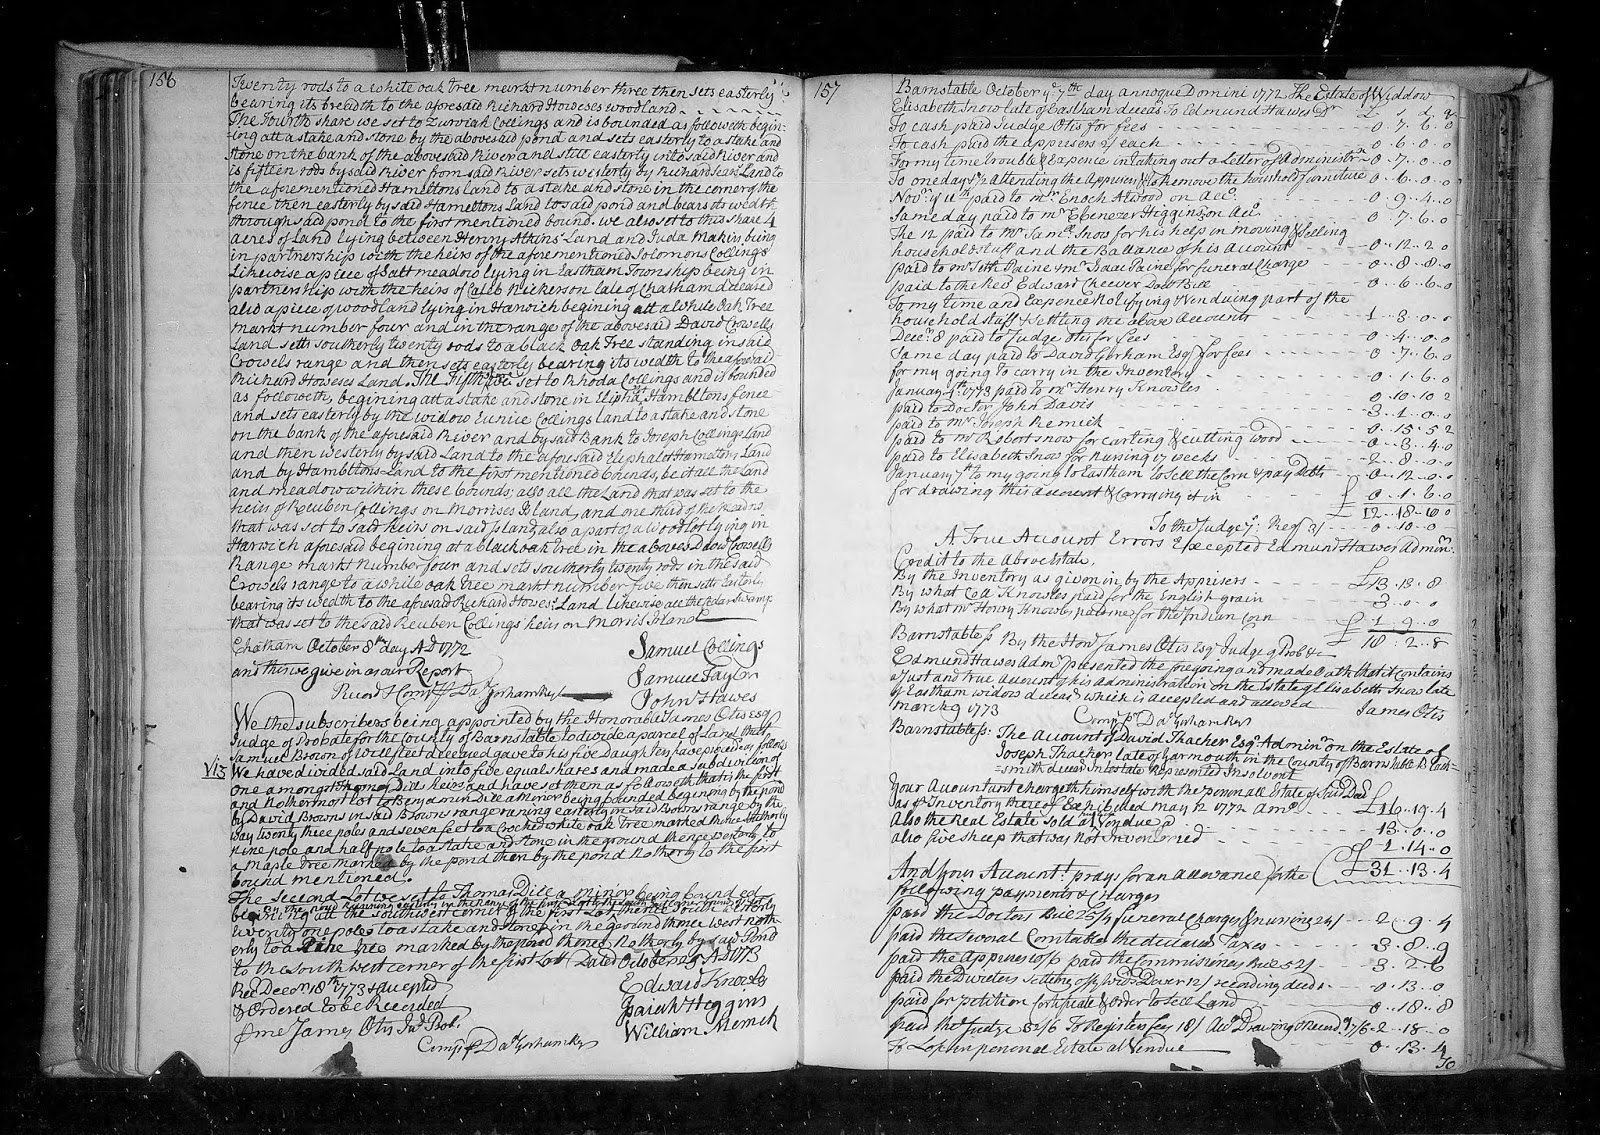 156
Twenty rods to a white oak tree markt number three then sets easterly
bearing its breadth to the aforesaid Richard Howeses woodland
The Fourth share we set to Zurviah Collings and is bounded as followeth begin-
ing att a stake and stone by the abovesaid pond and sets easterly to a stake and
stone on the bank of the abovesaid River and still easterly into said River and
is fifteen rods by said River from said River sets westerly by Richard Land to
the aforementioned Hamiltons land to a stake and stone in the corner of the
fence then easterly by said Hameltons Land to said pond and bears its wedth
through said pond to the first mentioned bound. we also set to this share 4
acres of Land lying between Henry Atkins Land and Juda Makins being
in partnership with the heirs of the aforementioned Solomons Collings
Likewise a piece of Salt meadow lying in Eastham Township being in
partnership with the heirs of Caleb Nickerson late of Chatham deceased
also a piece of woodland lying in Harwich begining att a White Oak Tree
markt number four and in the range of the abovesaid David Crowells
Land setts southerly twenty rods to a black oak Tree standing in said
Crowels range and then sets easterly bearing its wedth to the aforesaid
Richard Howeses Land. The Fifth we set to Rhoda Collings and is bounded
as followeth, begining att a stake and stone in Eliph Hambltons fence
and sets easterly by the widow Eunice Collings land to a stake and stone
on the bank of the aforesaid River and by said Bank to Joseph Collings Land
and then westerly by said Land to the aforesaid Elephalet Land
and by Hambltons Land to the first mentioned bounds, be it all the Land
and meadow within these bounds; also all the Land that was set to the
heirs of Reuben Collings on Morrises Island, and one third of the meadows
that was set to said heirs on said Island, also a part of a Woodlot lying in
Harwich aforesaid begining at a black oak tree in the aboves David Crowells
Range markt Number four and sets southerly twenty rods in the said
Crowels range to a while oak tree markt number five then setts Easterly
bearing its wedth to the aforesaid Richard Howes: Land Likewise all the Cedar Swamp
that was set to the said Reuben Collings heirs on Morris Island
Chatham October 8th day AD 1772
and this we give in as our Report
Samuel Collings
Samuel Taylor
John Hawes
Record & Comp. Da. Gorham Reg
We the subscribers being appointed by the Honorable James Otis Esq
Judge of Probate for the County of Barnstable to divide a parcel of Land that
Samuel Brown of Wellfleet deceased gave to his five Daughters have proceeded as follows
Viz We have divided said Land into five equal shares and made a subdivision of
one amongst Thomas Dills heirs and have set them as followeth that is the first
and Nothermost lot to Benjamin Dill a Minor being bounded begining by the pond
by David Browns in said Browns range runing easterly in said Browns range by the
way twenty three poles and seven feet to a Crocked white oak Tree marked thence southerly
nine pole and half pole to a stake and stone in the ground thence westerly to
a Maple Tree marked by the pond then by the pond Notherly to the first
bound mentioned.
The second Lot we set to Thomas Dill a minor being bounded
begining att the southwest corner of the first Lot thence south easterly
twenty one poles to a stake and stones in the ground thence west noth-
erly to a Pine tree marked by the pond thence Notherly by said Pond
to the southwest corner of the first Lott Dated October 25 AD 1773
Rec Decem 18th 1773 & accepted
& Ordered to be Recorded
Edward Knowles
Isaiah Higgins
William
me James Otis Ju. Prob.
Comp. p Da. Gorham Reg
157
Barnstable October ye 7th day annoque Domini 1772 The Estate of Widdow
Elisabeth Snow late of Eastham deceas To Edmund Hawes Dr £ s d q
To cash paid Judge Otis for fees 0..7..6..0
To cash paid the apprisers of each 0..6..0..0
For my time trouble & Expence in taking out a Letter of Administr 0..7..0..0
To one day & 1/2 attending the Apprisers & to Remove the houshold furniture 0..6..0..0
Nov. 9 paid to mr Enoch Atwood on Acc. 0..9..4..0
Same day paid to mr Ebenezer Higgins on Acc. 0..7..6..0
The 12 paid to Mr Saml Snow for his help in moving & selling
household stuff and the Ballance of his Account 0..12..2..0
paid to mr Seth Paine & mr Isaac Paine for funeral Charge 0..8..8..0
paid to the Rev Edward Cheever Bill 0..6..6..0
To my time and Expence Notifying & Venduing part of the
household stuff & settling the above Accounts 1..3..0..0
Decr 8 paid to Judge Otis for fees 0..4..0..0
Same day paid to David Gorham Esq for fees 0..7..6..0
for my going to carry in the Inventory 0..1..6..0
January 4th 1773 paid to mr Henry Knowles 0..10..10..2
paid to Doctor John Davis 3..1..0..0
paid to mr Joseph Remick 0..15..5..2
paid to mr Robert Snow for carting & cutting wood 0..3..4..0
paid to Elisabeth Snow for Nursing 17 weeks 2..8..0..0
January 7th to my going to Eastham to Sell the Corn & pay Debts 0..12..0..0
for drawing this account & Carrying it in £ 0..1..6..0
£ 12..18..6..0
To the Judge 7: Reg 3/ 0..10..0
A True Account Errors Excepted Edmund Hawes Admin.
Credit to the Above Estate.
By the Inventory as given in by the Apprisers £13..13..8
By what Coll Knowles paid for the English grain 3..0..0
By what Mr Henry Knowles paid me for the Indian Corn £ 1..9..0
£ 18..2..8
Barnstable ss By the Honl James Otis Esq Judge of Prob &c
Edmund Hawes Adm. presented the foregoing and made Oath that it contains
a Just and true Account of his Administration on the Estate of Elisabeth Snow late
of Eastham widow deceas. which is accepted and allowed James Otis
March 9 1773
Comp. p Da. Gorham Reg
Barnstable ss: The Account of David Thacher Esq. Admin. on the Estate of
Joseph Thacher late of Yarmouth in the County of Barnstable
smith deced Intestate Represented Insolvent
Your Accountant chargeth himself with the personall Estate of said Deced
as Inventory thereof Exhibited May 12 1772 Amo. £16..19..4
Also the Real Estate sold at Vendue 13..0..0
also five sheep that was not Inventoried 1..14..0
£ 31..13..4
And your Account. prays for an allowance for the
following payments & Charges
paid the Doctors Bill 25/4 funeral Charges & nursing 24/ 2..9..4
paid the several Constables the deceased Taxes 3..8..9
paid the Apprisers 10/6 paid the Commissioners Bill 52/ 3..2..6
paid the Divieters setting off Wids. Dower 12/ recording deeds 0..13..0
paid for petition certificate & order to sell Land 0..18..8
paid the Judge 22/6 To Registers fees 18/ Drawing & Recordg 17/6 2..18..0
To Loss on personal Estate at Vendue 0..13..4
To